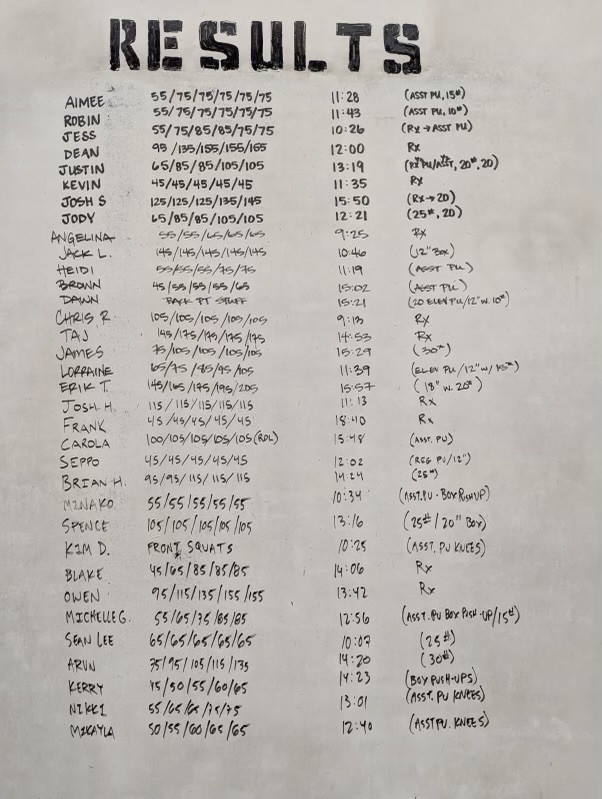 RESULTS
AIMEE 55/75/75/75/75/75 11:28 (ASST PU, 15#)
ROBIN 55/75/75/75/75/75 11:43 (ASST PU, 10#)
JESS 55/75/85/85/75/75 10:26 (RX → ASST PU)
DEAN 95/135/155/155/165 12:00 RX
JUSTIN 65/85/85/105/105 13:19 PU/ASST, 20#, 20)
KEVIN 45/45/45/45/45 11:35 RX
JOSH S 125/125/125/135/145 15:50 (RX→20)
JODY 65/85/85/105/105 12:21 (25#, 20)
ANGELINA 55/55/65/65/65 9:25 RX
JACK L. 145/145/145/145/145 10:46 (12" BOX)
HEIDI 55/55/55/75/75 11:19 (ASST PU)
BROWN 45/55/55/55/65 15:02 (ASST PU)
DAWN BACK PT STUFF 15:21 (20 ELEV PU/12" W. 10#)
CHRIS R. 105/105/105/105/105 9:13 RX
TAJ 145/175/175/175/175 14:53 RX
JAMES 75/105/105/105/105 15:29 (30#)
LORRAINE 65/75/85/95/105 11:39 (ELEV PU/12" W/ 15#)
ERIK T. 145/165/175/195/205 15:57 (18" W. 20#)
JOSH H. 115/115/115/115/115 11:13 RX
FRANK 45/45/45/45/45 18:40 RX
CAROLA 100/105/105/105/105 (RDL) 15:48 (ASST. PU)
SEPPO 45/45/45/45/45 12:02 (REG PU/12")
BRIAN H. 95/95/115/115/115 14:24 (25#)
MINAKO 55/55/55/55/55 10:34 (ASST. PU - BOX PUSHUP)
SPENCE 105/105/105/105/105 13:16 (25#/20" BOX)
KIM D. FRONT SQUATS 10:25 (ASST. PU KNEES)
BLAKE 45/65/85/85/85 14:06 RX
OWEN 95/115/135/155/155 13:42 RX
MICHELLE G. 55/65/75/85/85 12:56 (ASST. PU BOX PUSH-UP/15#)
SEAN LEE 65/65/65/65/65 10:07 (25#)
ARUN 75/95/105/115/135 14:20 (30#)
KERRY 45/50/55/60/65 14:23 (BOX PUSH-UPS)
NIKKI 55/65/65/75/75 13:01 (ASST. PU KNEES)
MIKAYLA 50/55/60/65/65 12:40 (ASST PU. KNEES)